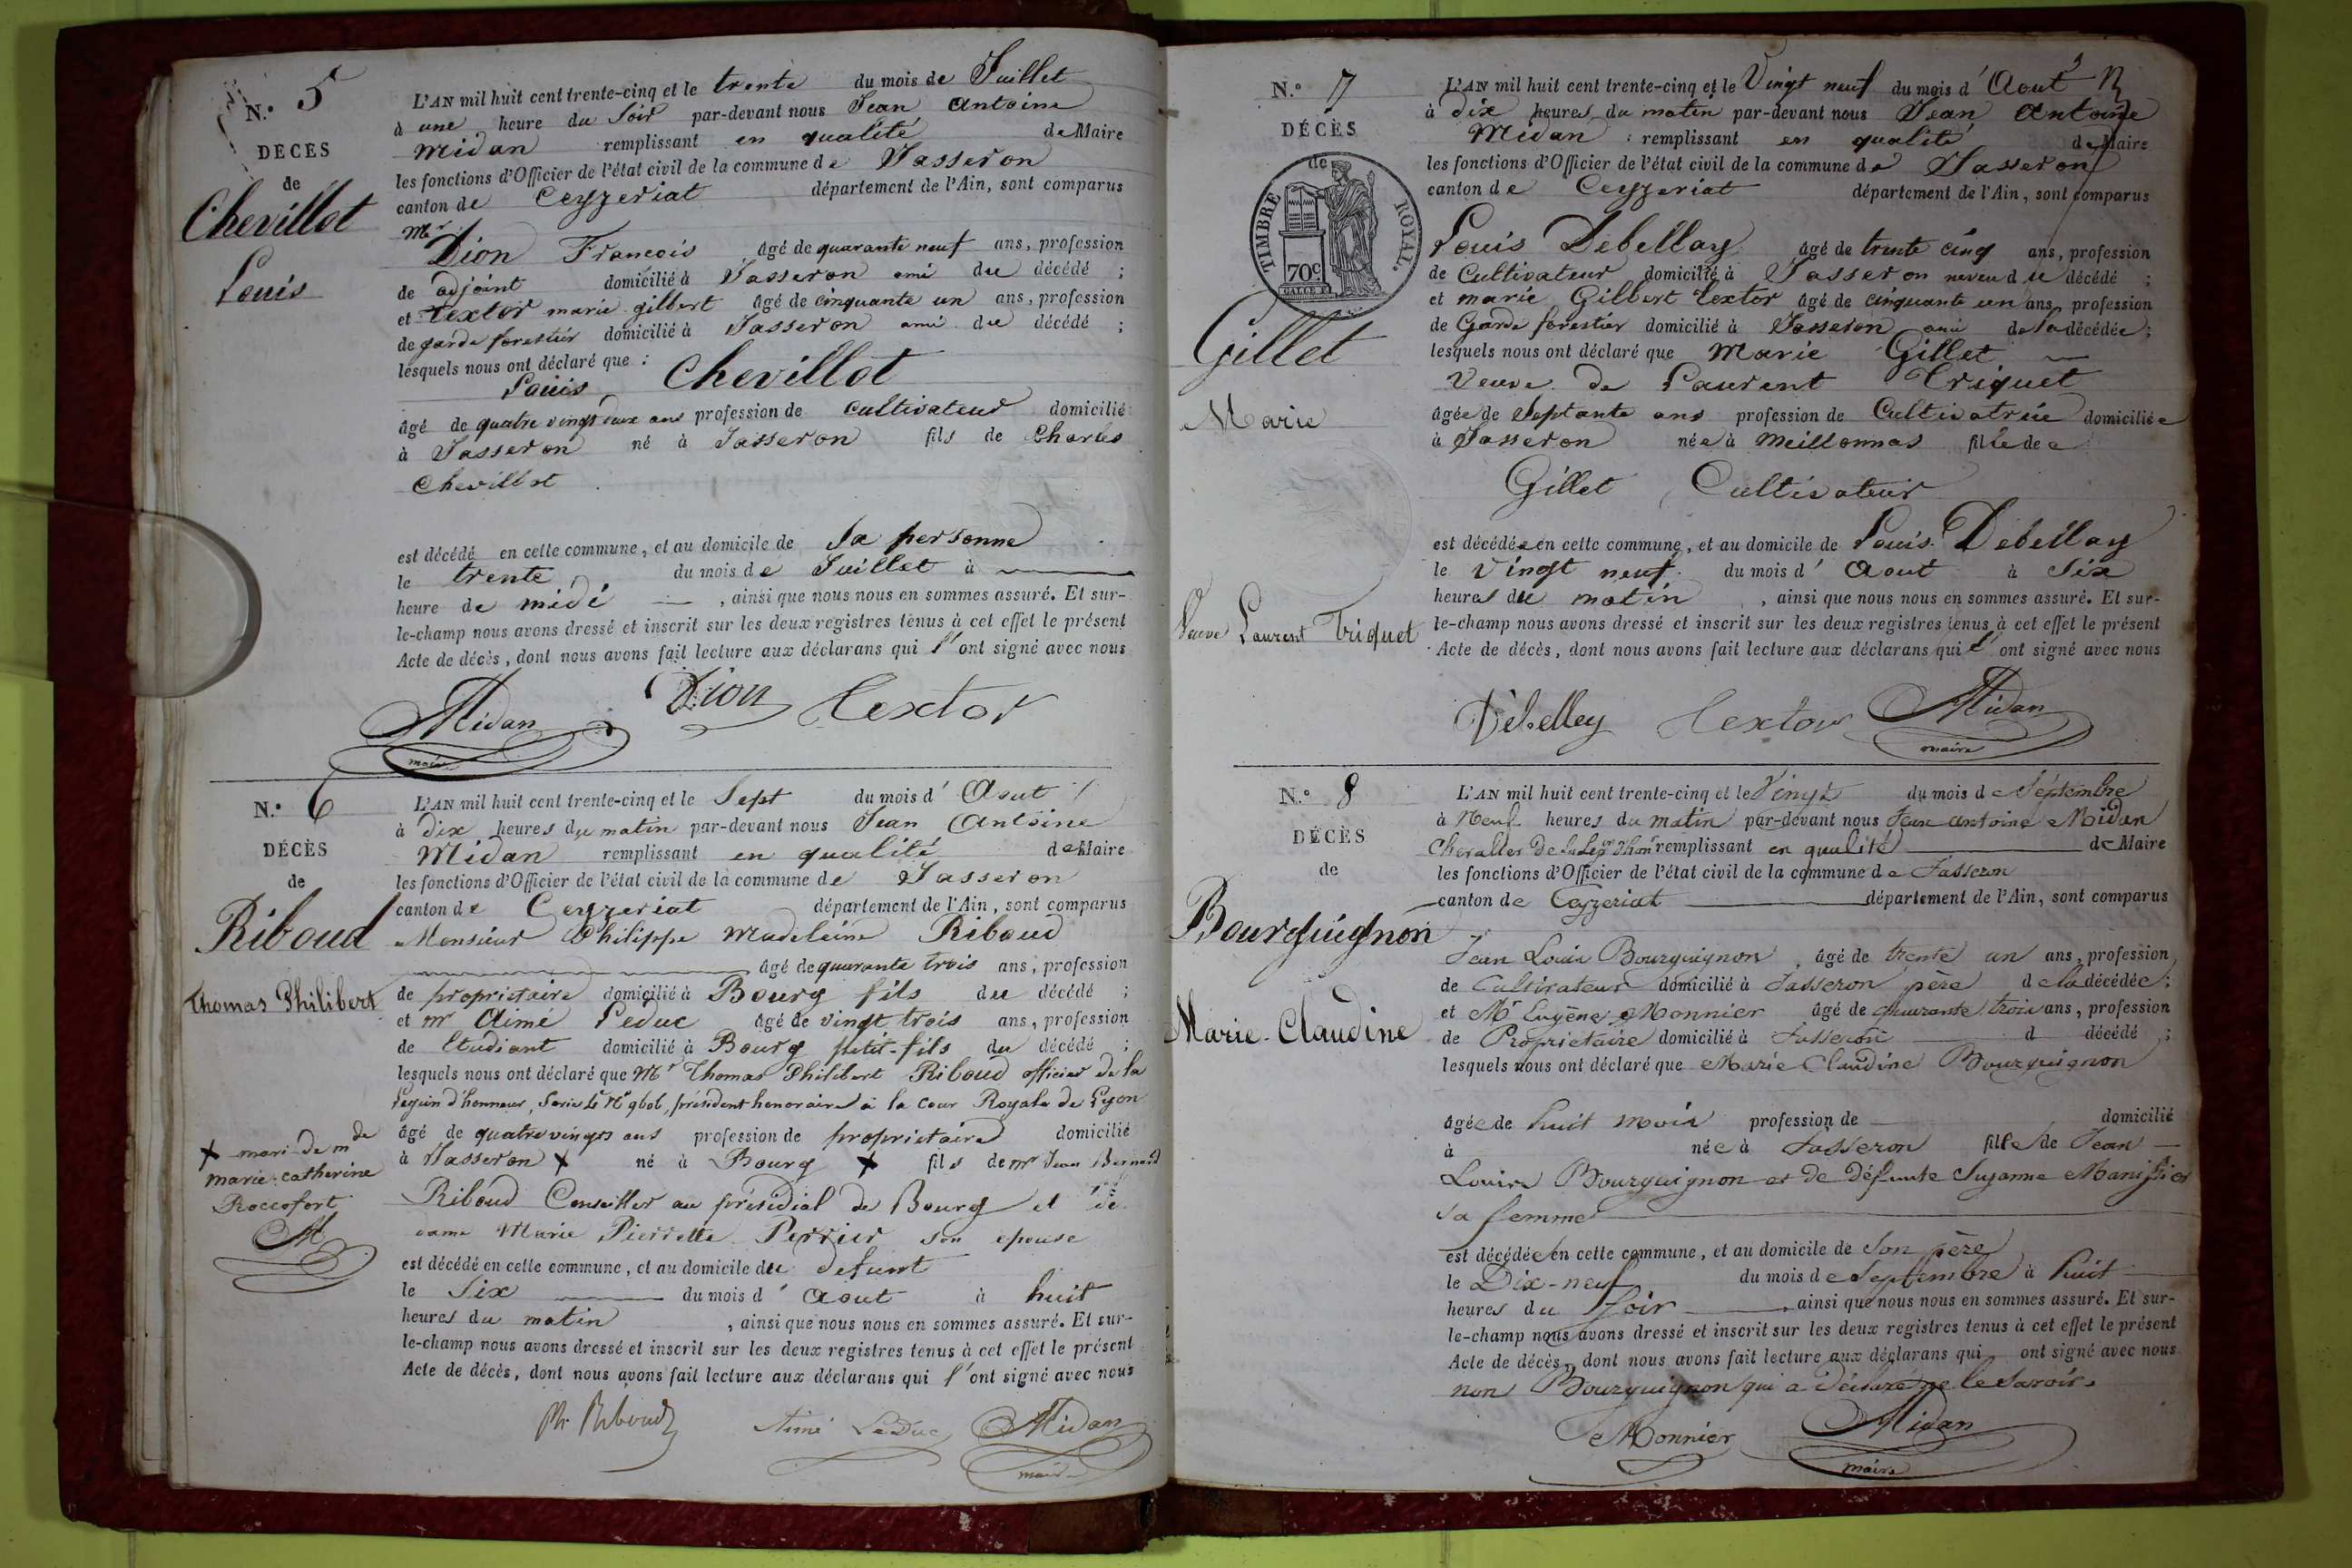 N.° 5
DÉCÈS
de
Chevillot
Louis
L'AN mil huit cent trente-cinq et le trente du mois de Juillet
à une heure du Soir par-devant nous Jean Antoine
Midan remplissant en qualité de Maire
les fonctions d'Officier de l'état civil de la commune de Jasseron
canton de Ceyzeriat département de l'Ain, sont comparus
Mr Dion Francois âgé de quarante neuf ans, profession
de adjoint domicilié à Jasseron ami du décédé ;
et textor marie gilbert âgé de cinquante un ans, profession
de garde forestier domicilié à Jasseron ami du décédé ;
lesquels nous ont déclaré que :
Louis Chevillot
âgé de quatre vingt deux ans profession de Cultivateur domicilié
à Jasseron né à Jasseron fils de Charles
Chevillot
est décédé en cette commune, et au domicile de Sa personne
le trente du mois de Juillet à
heure de midi , ainsi que nous nous en sommes assuré. Et sur-
le-champ nous avons dressé et inscrit sur les deux registres tenus à cet effet le présent
Acte de décès, dont nous avons fait lecture aux déclarans qui l'ont signé avec nous
Midan Dion Textor
maire
N.° 6
DÉCÈS
de
Riboud
Thomas Philibert
L'AN mil huit cent trente-cinq et le Sept du mois d'Aout
à dix heures du matin par-devant nous Jean Antoine
Midan remplissant en qualité de Maire
les fonctions d'Officier de l'état civil de la commune de Jasseron
canton de Ceyzeriat département de l'Ain, sont comparus
Monsieur Philippe Madeleine Riboud
âgé de quarante trois ans, profession
de propriétaire domicilié à Bourg fils du décédé ;
et mr Aimé Leduc âgé de vingt trois ans, profession
de Etudiant domicilié à Bourg petit-fils du décédé ;
lesquels nous ont déclaré que Mr Thomas Philibert Riboud officier de la
Legion d'honneur, Serie N° 9606, président honoraire à la Cour Royale de Lyon
âgé de quatre vingts ans profession de propriétaire domicilié
à Jasseron X né à Bourg X fils de mr Jean Bernard
X mari de mde
marie catherine
Roccofort
M
Riboud Conseiller au présidial de Bourg et de
dame Marie Pierrette Perrier son epouse
est décédé en cette commune, et au domicile du defunt
le Six du mois d'Aout à huit
heures du matin , ainsi que nous nous en sommes assuré. Et sur-
le-champ nous avons dressé et inscrit sur les deux registres tenus à cet effet le présent
Acte de décès, dont nous avons fait lecture aux déclarans qui l'ont signé avec nous
Ph Riboud Aimé LeDuc Midan
maire
N.° 7
DÉCÈS
de
TIMBRE ROYAL.
70c
Gillet
Marie
Veuve Laurent Triquet
L'AN mil huit cent trente-cinq et le Vingt neuf du mois d'Aout
à dix heures du matin par-devant nous Jean Antoine
Midan : remplissant en qualité de Maire
les fonctions d'Officier de l'état civil de la commune de Jasseron
canton de Ceyzeriat département de l'Ain, sont comparus
Louis Debellay âgé de trente cinq ans, profession
de Cultivateur domicilié à Jasseron neveu du décédé ;
et marie Gilbert textor âgé de cinquante un ans, profession
de Garde forestier domicilié à Jasseron ami de la décédée ;
lesquels nous ont déclaré que Marie Gillet
Veuve de Laurent Triquet
âgée de Septante ans profession de Cultivatrice domiciliée
à Jasseron née à Meillonnas fille de
Gillet Cultivateur
est décédée en cette commune, et au domicile de Louis Debellay
le Vingt neuf du mois d'Aout à Six
heures du matin , ainsi que nous nous en sommes assuré. Et sur-
le-champ nous avons dressé et inscrit sur les deux registres tenus à cet effet le présent
Acte de décès, dont nous avons fait lecture aux déclarans qui l'ont signé avec nous
Debelley Textor Midan
maire
N.° 8
DÉCÈS
de
Bourguignon
Marie-Claudine
L'AN mil huit cent trente-cinq et le Vingt du mois de Septembre
à Neuf heures du matin par-devant nous Jean antoine Midan
Chevalier De la Legr D'honr remplissant en qualité de Maire
les fonctions d'Officier de l'état civil de la commune de Jasseron
canton de Ceyzeriat département de l'Ain, sont comparus
Jean Louis Bourguignon, âgé de trente un ans, profession
de Cultivateur domicilié à Jasseron père de la décédée ;
et Mr Eugène Monnier âgé de quarante trois ans, profession
de Propriétaire domicilié à Jasseron d décédé ;
lesquels nous ont déclaré que Marie Claudine Bourguignon
âgée de huit mois profession de domicilié
à née à Jasseron fille de Jean
Louis Bourguignon et de Défunte Suzanne Manissier
sa femme
est décédée en cette commune, et au domicile de Son père
le Dix-neuf du mois de Septembre à huit
heures du Soir , ainsi que nous nous en sommes assuré. Et sur-
le-champ nous avons dressé et inscrit sur les deux registres tenus à cet effet le présent
Acte de décès, dont nous avons fait lecture aux déclarans qui ont signé avec nous
non Bourguignon qui a Déclaré ne le Savoir.
e Monnier Midan
maire